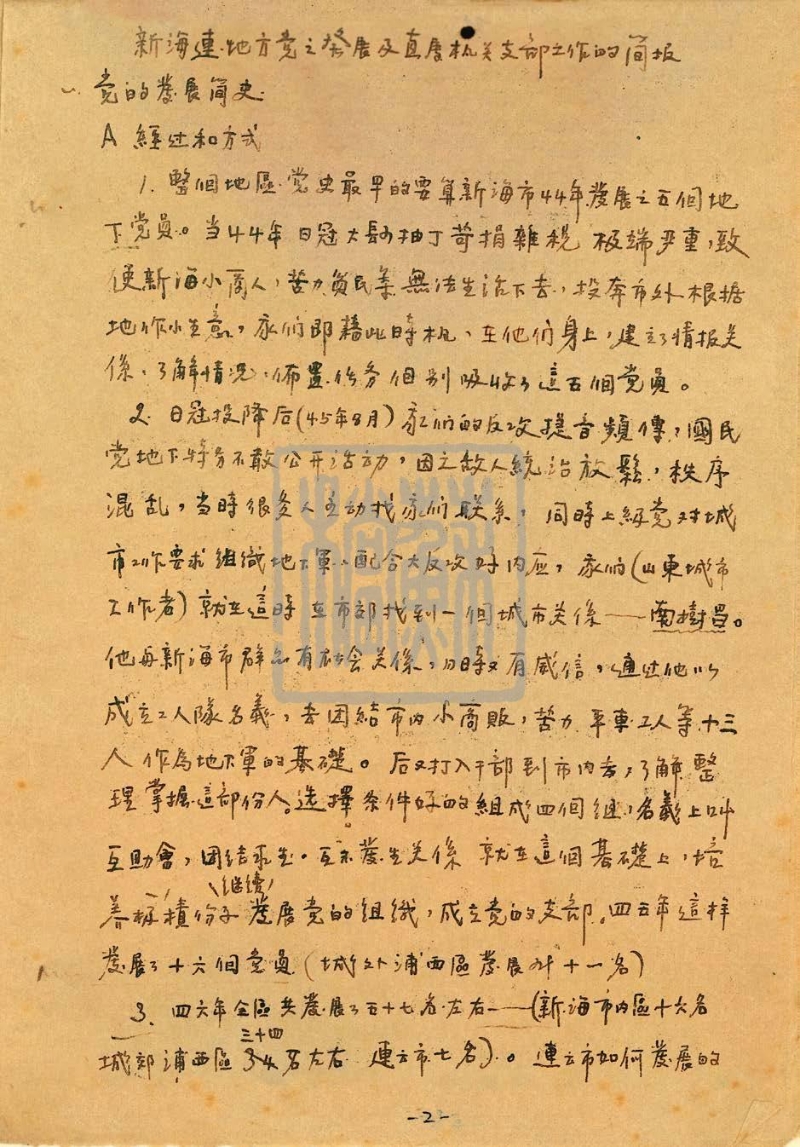 新海連地方党之發展及直属机关支部工作的简报
一、党的發展简史
A 經过和方式
1. 整個地區党史最早的要算新海市44年發展之五個地
下党員。当44年日冠大肆抽丁苛捐雜税极端严重,致
使新海小商人,苦力貧民等無法生活下去,投奔市外根据
地作小生意,家們即藉此時机,在他們身上,建立了情报关
係,了解情况,佈置任务個别吸收了這五個党員。
2. 日冠投降后(45年8月)家們的反攻捷音頻傳,國民
党地下特务不敢公开活动,因之敌人統治放鬆,秩序
混乱,当時很多人主动找家們联系,同時上級党对城
市工作要求組織地下軍,配合大反攻好内应,家們(山東城市
工作者)就在這時在市部找到一個城市关係——南樹昌。
他与新海市群众有社会关係,旧時又有威信,通过他以
成立工人隊名義,去团結市内小商販,苦力平車工人等十三
人作為地下軍的基礎。后又打入干部到市内去,了解整
理掌握這部份人。选擇条件好的組成四個組,名義上叫
互助會,团结求生。互不發生关係就在這個基礎上,培
养极積份子继续發展党的組織,成立党的支部。四五年這样
發展了十六個党員(城外浦西區發展 十一名)
3. 四六年全區共發展了五十七名左右——(新海市内區十六名
城郊浦西區三十四名左右 連云市七名)。連云市如何發展的
-2-